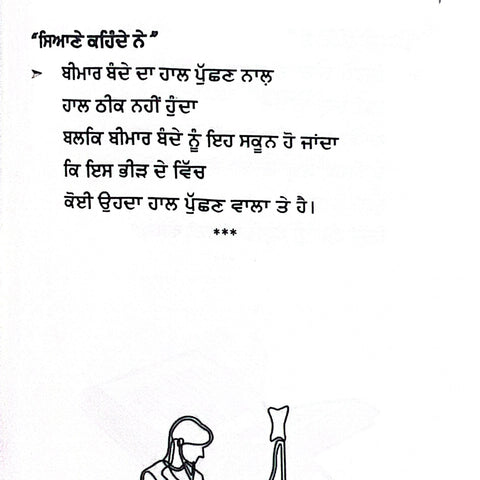 “ਸਿਆਣੇ ਕਹਿੰਦੇ ਨੇ”
➢ ਬੀਮਾਰ ਬੰਦੇ ਦਾ ਹਾਲ ਪੁੱਛਣ ਨਾਲ਼
ਹਾਲ ਠੀਕ ਨਹੀਂ ਹੁੰਦਾ
ਬਲਕਿ ਬੀਮਾਰ ਬੰਦੇ ਨੂੰ ਇਹ ਸਕੂਨ ਹੋ ਜਾਂਦਾ
ਕਿ ਇਸ ਭੀੜ ਦੇ ਵਿੱਚ
ਕੋਈ ਉਹਦਾ ਹਾਲ ਪੁੱਛਣ ਵਾਲਾ ਤੇ ਹੈ।
***